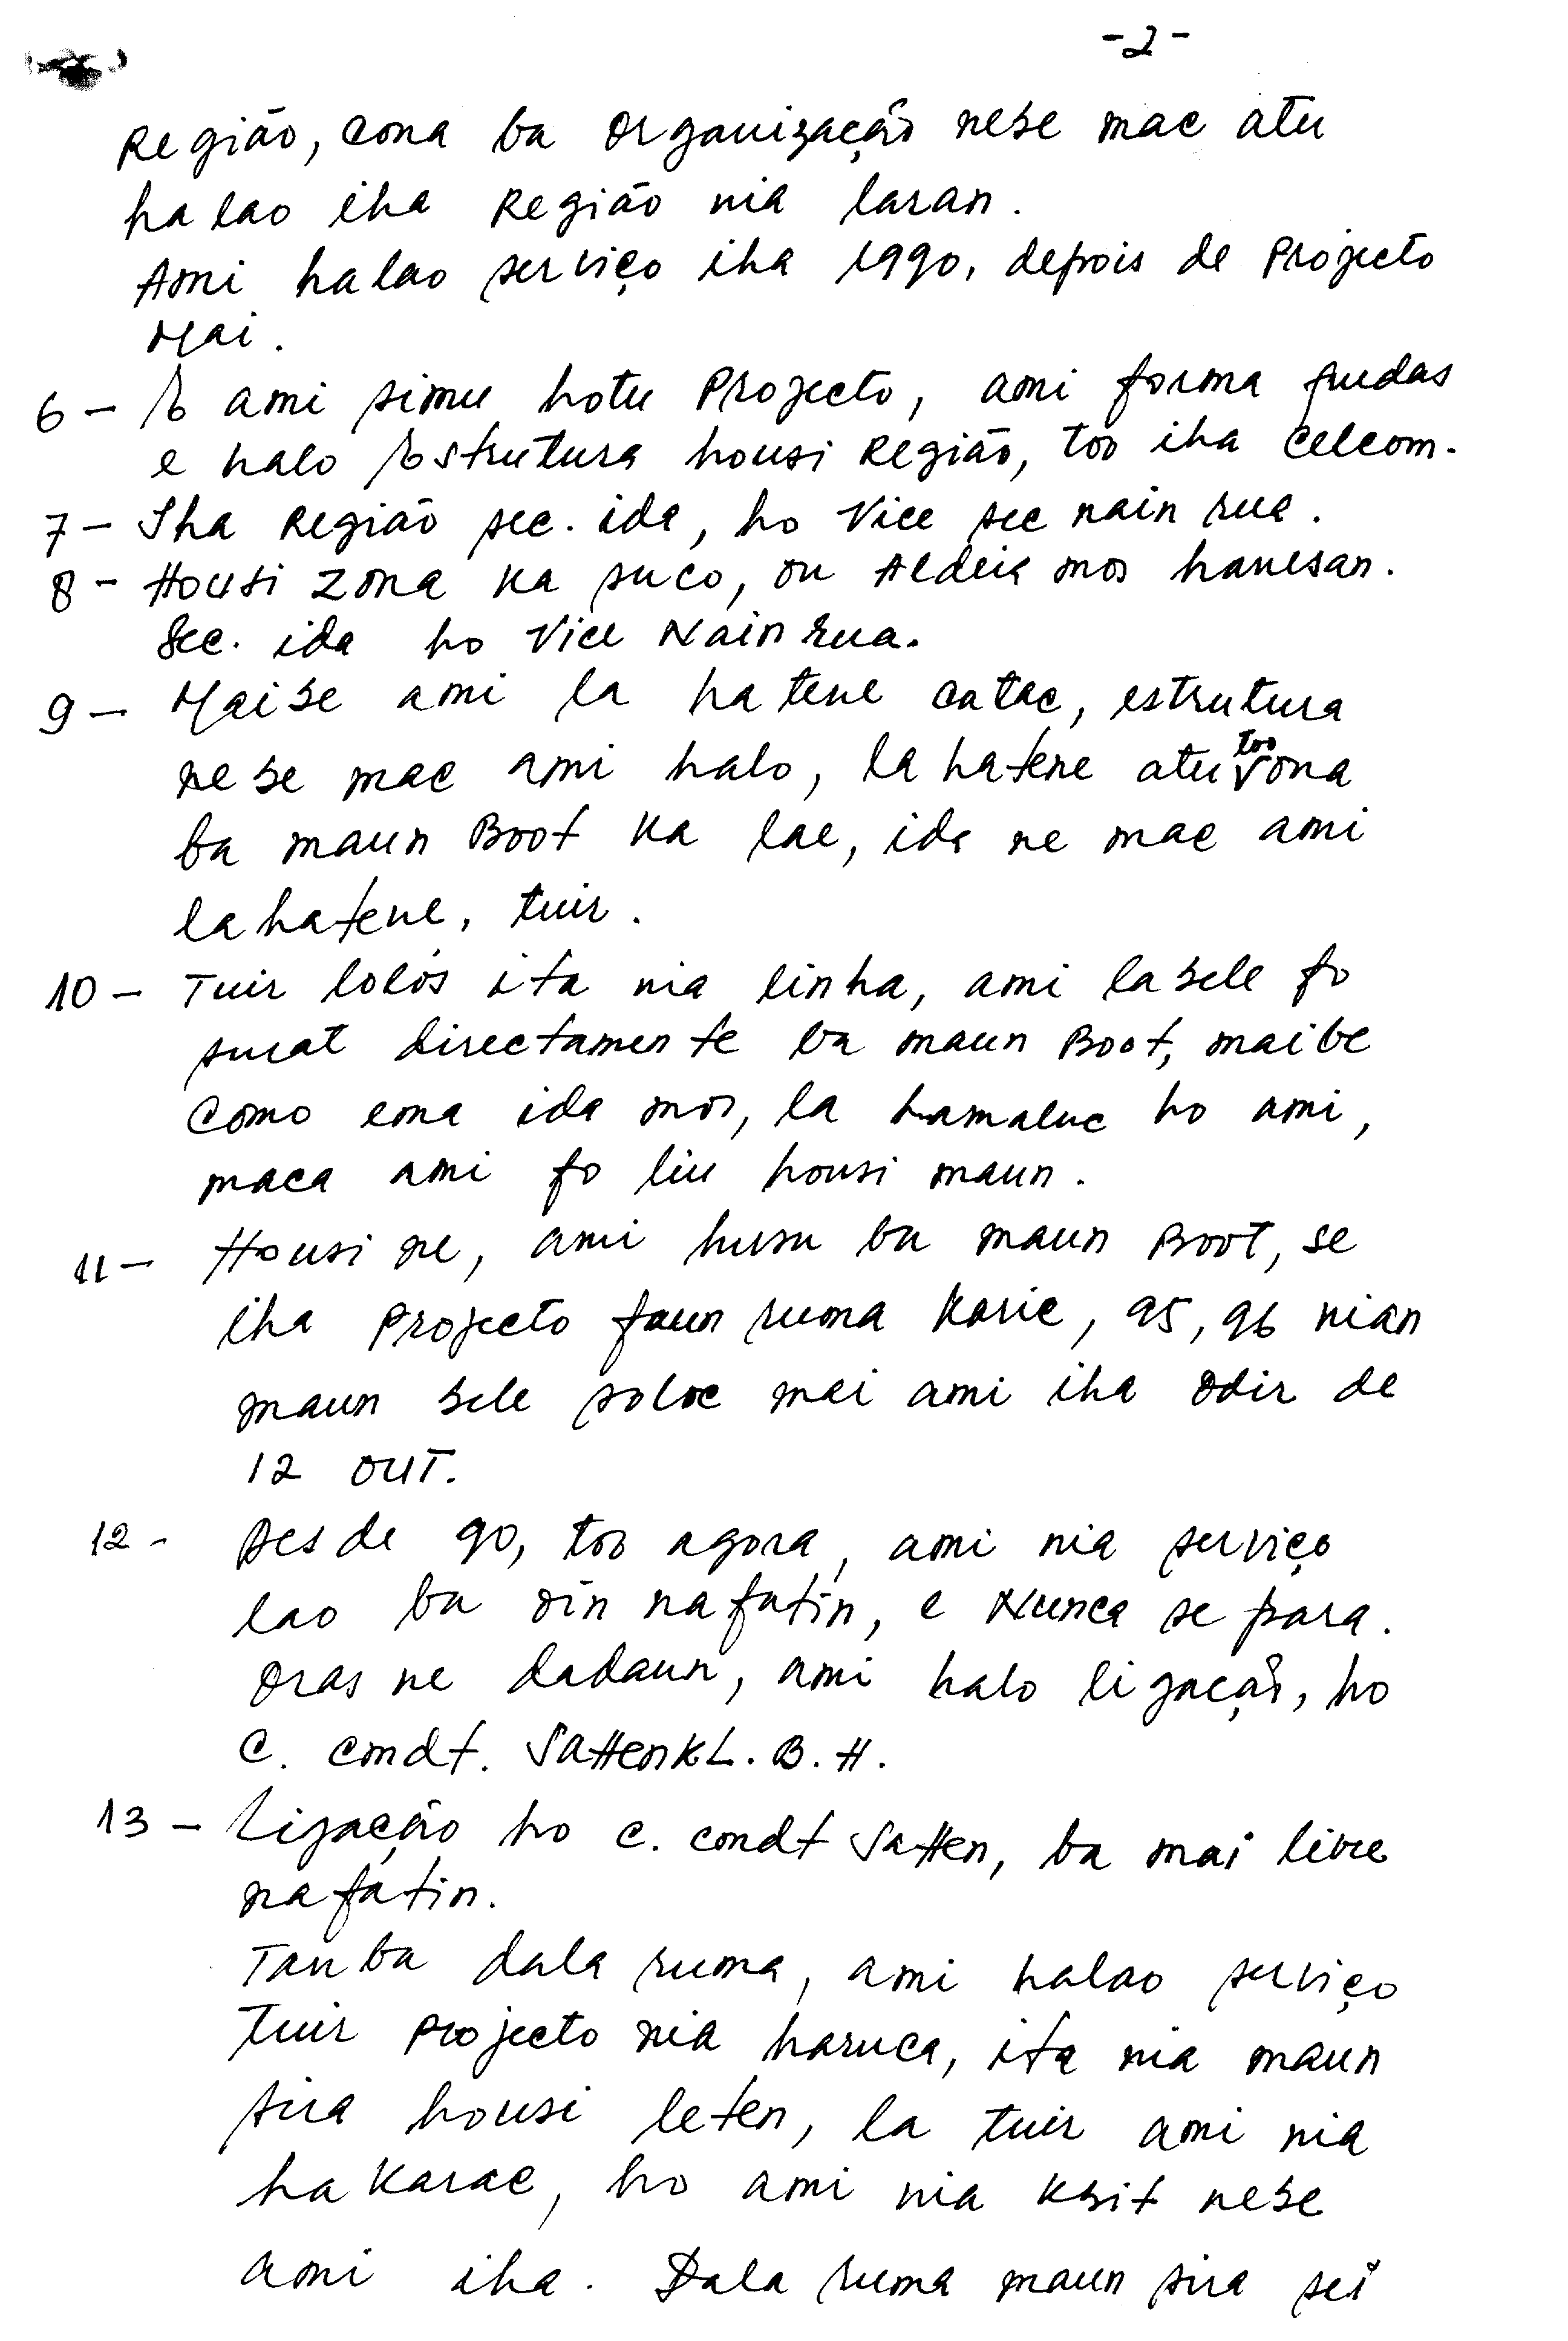 -2-
Região, cona ba organização nebe mac atu
halao iha Região nia laran.
Ami halao serviço iha 1990, depois de Projecto
Mai.
6 - E ami simu hotu Projecto, ami forma fudas
e halo Estrutura housi Região, too iha Celcom.
7 - Iha Região sec. ida, ho Vice sec nain rua.
8 - Housi zona ka suco, ou Aldeia mos hanesan.
Sec. ida ho Vice Nain rua.
9 - Maibe ami la hatene catac, estrutura
nebe mac ami halo, la hatene atu too
ba maun Boot ka lae, ida ne mac ami
la hatene, tuir.
10 - Tuir lolós ita nia linha, ami la bele fo
surat directamente ba maun Boot, maibe
como ema ida mos, la hamaluc ho ami,
maca ami fo liu housi maun.
11 - Housi ne, ami husu ba maun Boot, se
iha Projecto foun ruma karic, 95, 96 nian
maun bele soloc mai ami iha Odir de
12 OUT.
12 - Desde 90, too agora, ami nia serviço
lao ba oin nafatin, e Nunca se para.
Oras ne dadaun, ami halo ligação, ho
C. Comdt. Sattenk L.B.H.
13 - Ligação ho C. Comdt Satten, ba mai livre
nafatin.
Tanba dala ruma, ami halao serviço
Tuir Projecto nia haruca, ita nia maun
sira housi leten, la tuir ami nia
hakarac, ho ami nia kbit nebe
ami iha. Dala ruma maun sira sei